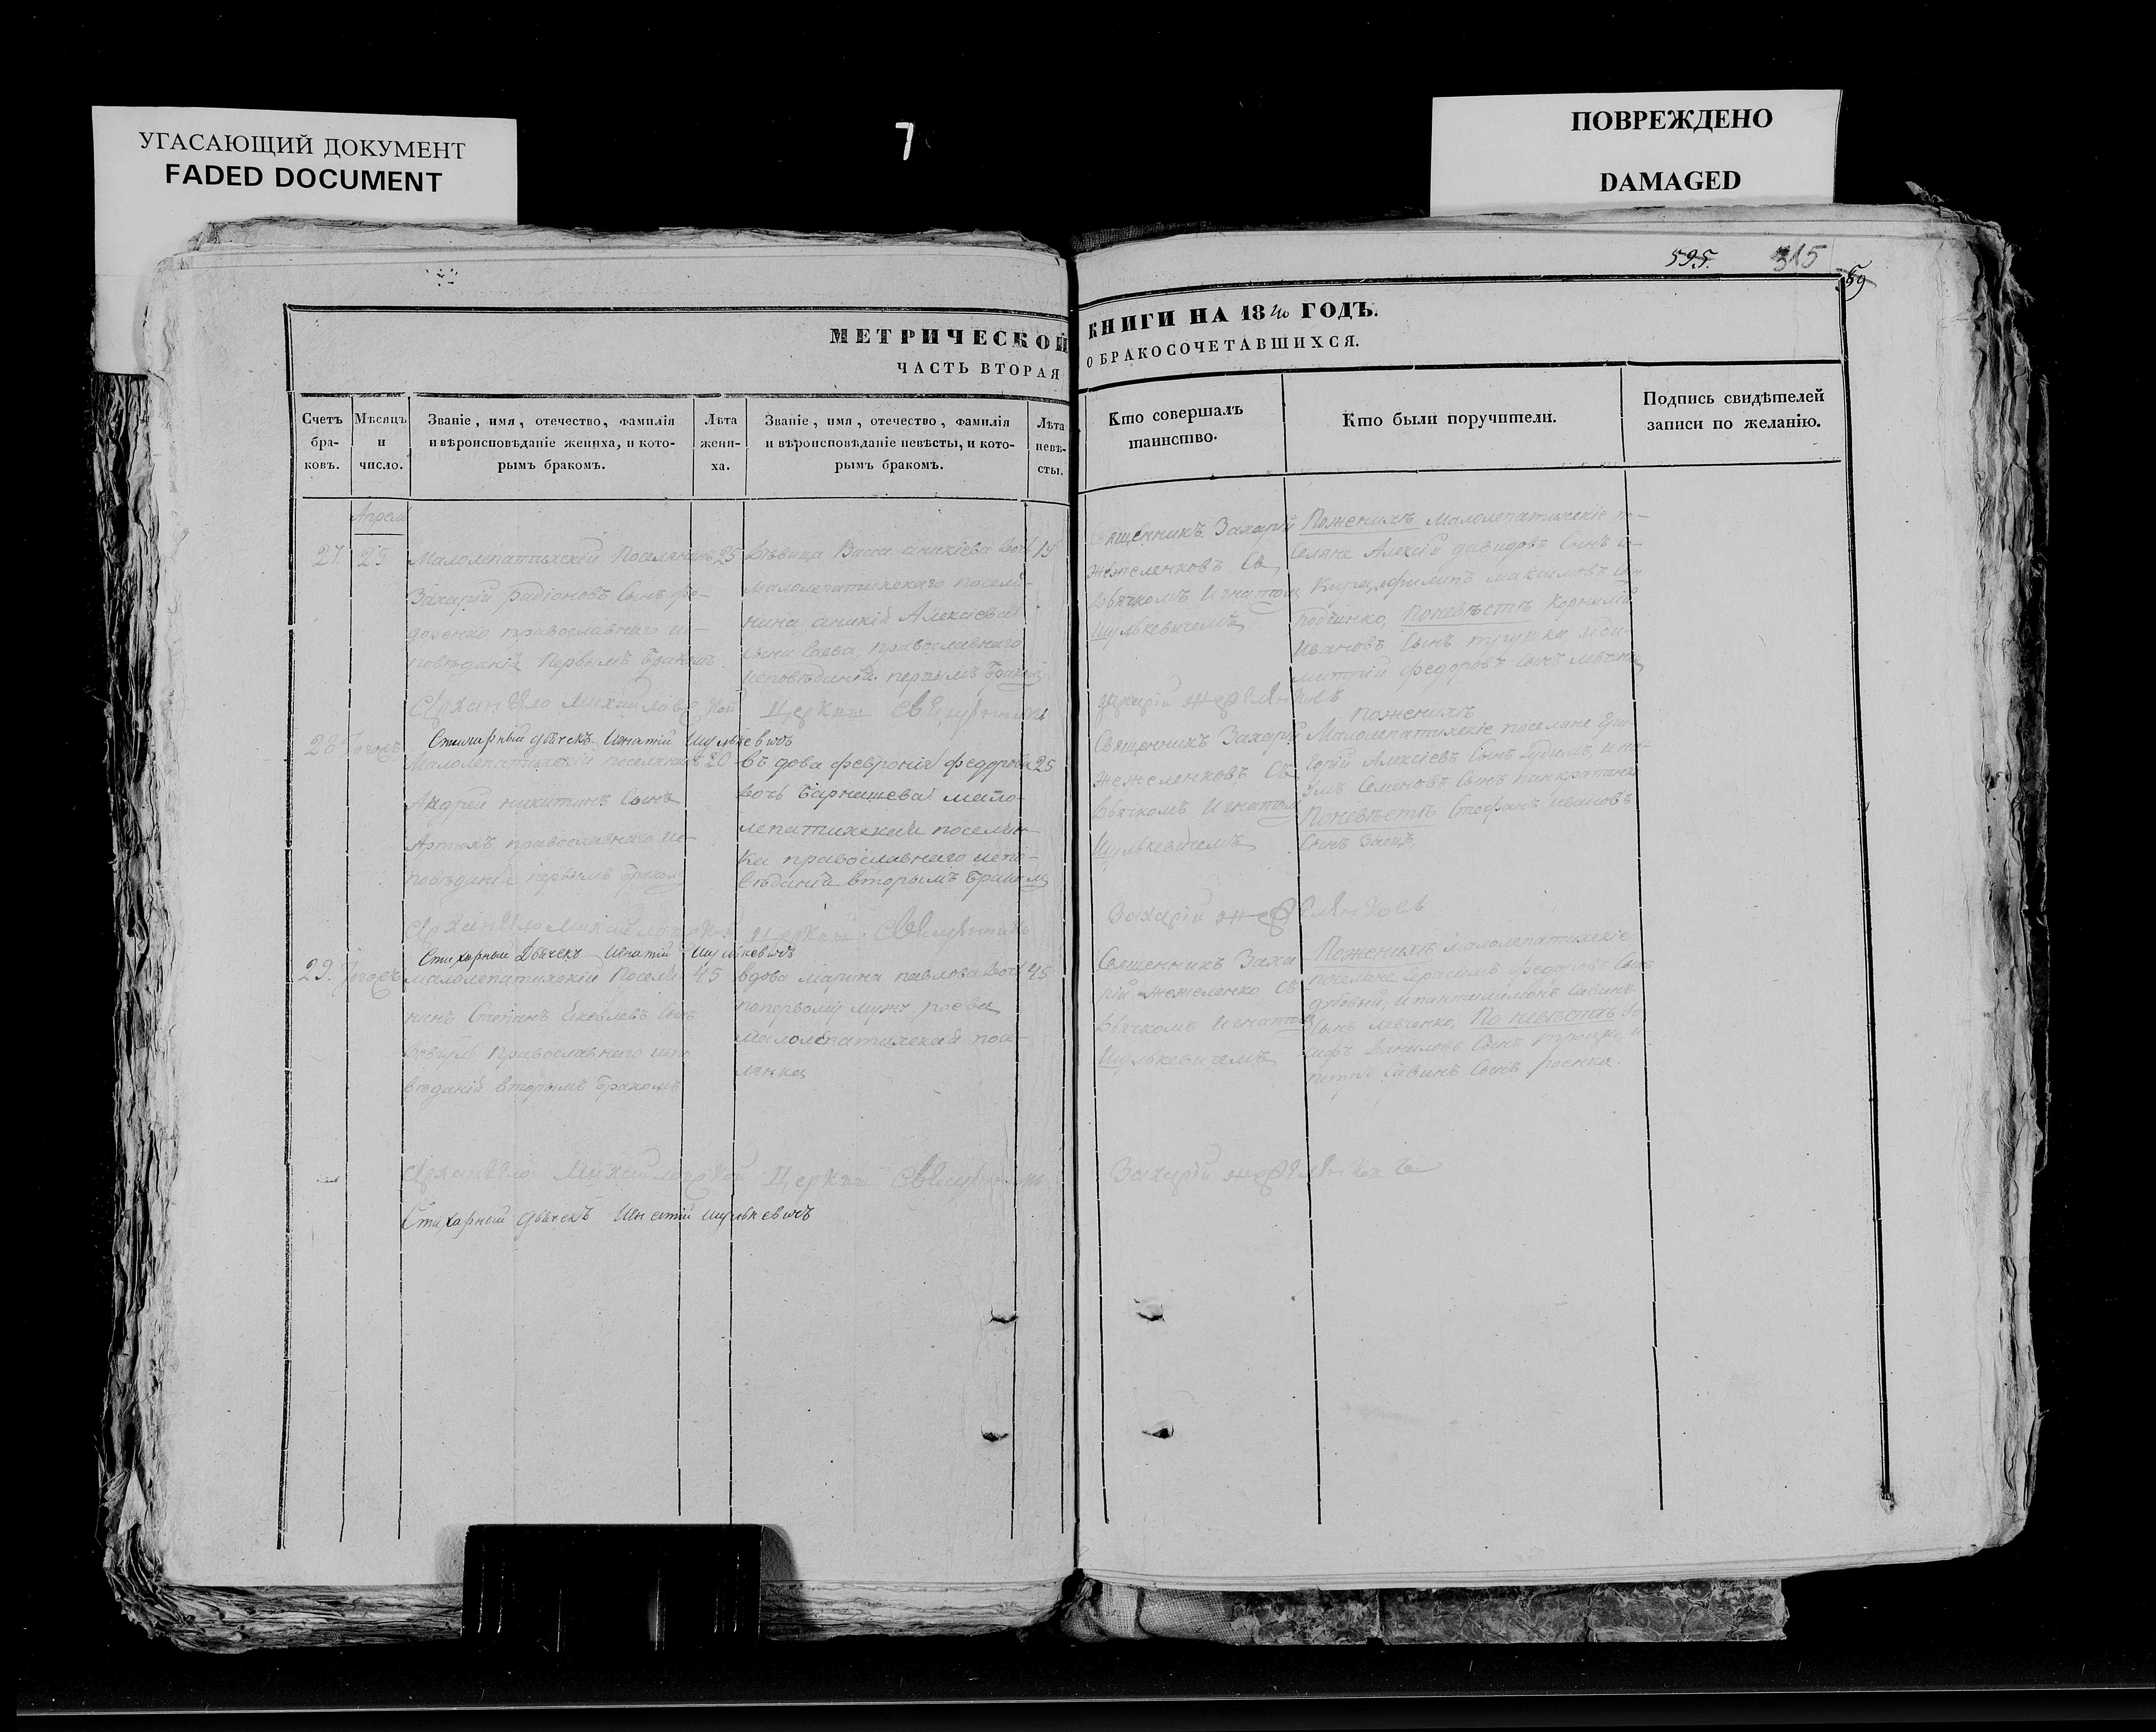 УГАСАЮЩИЙ ДОКУМЕНТ
FADED DOCUMENT
7
ПОВРЕЖДЕНО
DAMAGED
595. 315
59
МЕТРИЧЕСКОЙ
ЧАСТЬ ВТОРАЯ
КНИГИ НА 1840 ГОДЪ.
О БРАКОСОЧЕТАВШИХСЯ.
Счетъ бра- ковъ.
Мѣсяцъ и число.
Званіе, имя, отечество, фамилія
и вѣроисповѣданіе жениха, и кото-
рымъ бракомъ.
Лѣта жени- ха.
Званіе, имя, отечество, фамилія
и вѣроисповѣданіе невѣсты, и кото-
рымъ бракомъ.
Лѣта невѣ- сты.
Кто совершалъ
таинство.
Кто были поручители.
Подпись свидѣтелей
записи по желанію.
Апреля
27. 25
Малолепатихскій Поселянинъ 25
Захарій радіоновъ Сынъ фе-
доренко, православнаго ис-
повѣданій Первымъ бракомъ
Дѣвица Васса аникіева дочь 19
малолепатихскаго поселя-
нина аникій Алексѣева
сына Саева, православнаго
исповѣданій первымъ бракомъ
Священникъ Захарій
Жежеленковъ Съ
дьячкомъ Игнатом
Шулькевичемъ
Поженихѣ малолепатихскіе по-
селяне Алексій давидовъ Сынъ
Кипа, и филипъ максимовъ Сы
Поневѣстѣ Корнилій
Ивановъ Сынъ трушка, и ди-
митрій федоровъ Сынъ левченко
Архангело михайловской Церкви Священникъ Захарій Жежеленковъ
Стихарный дьячекъ Игнатій Шулькевичъ
28 Тогожъ
Малолепатихскій поселянинъ 20
Андрей никитинъ Сынъ
Артюхъ православнаго ис-
повѣданій первымъ бракомъ
вдова февронія федорова 25
дочь Барышева мало-
лепатихская поселян-
ка православнаго испо-
вѣданій вторымъ бракомъ
Священникъ Захарій
Жежеленковъ Съ
дьячкомъ Игнатом
Шулькевичемъ
Поженихѣ
Малолепатихскіе поселяне Гри-
горій Алексіевъ Сынъ
Семеновъ Сынъ панкратенко
Поневѣстѣ Стефанъ ивановъ
Сынъ Заецъ
Архангело Михайловской Церкви Священникъ Захарій Жежеленковъ
Стихарный Дьячекъ Игнатій Шулькевичъ
29. Тогожъ
малолепатихскій Поселя- 45
нинъ Степанъ Яковлевъ Сынъ
Православнаго испо-
вѣданій вторымъ бракомъ
вдова марина павлова дочь 45
попервому мужу роева
малолепатихская посе-
лянка
Священникъ Заха-
рій Жежеленко Съ
дьячкомъ Игнатом
Шулькевичемъ
Поженихѣ малолепатихскіе
поселяне Герасимъ федоровъ Сынъ
дубовый, и пантилимонъ Савинъ
Сынъ левченко, По невѣстѣ
Даниловъ Сынъ троцко, и
петръ Савинъ Сынъ роенко.
Архангело Михайловской Церкви Священникъ Захарій Жежеленковъ
Стихарный дьячекъ Игнатій Шулькевичъ